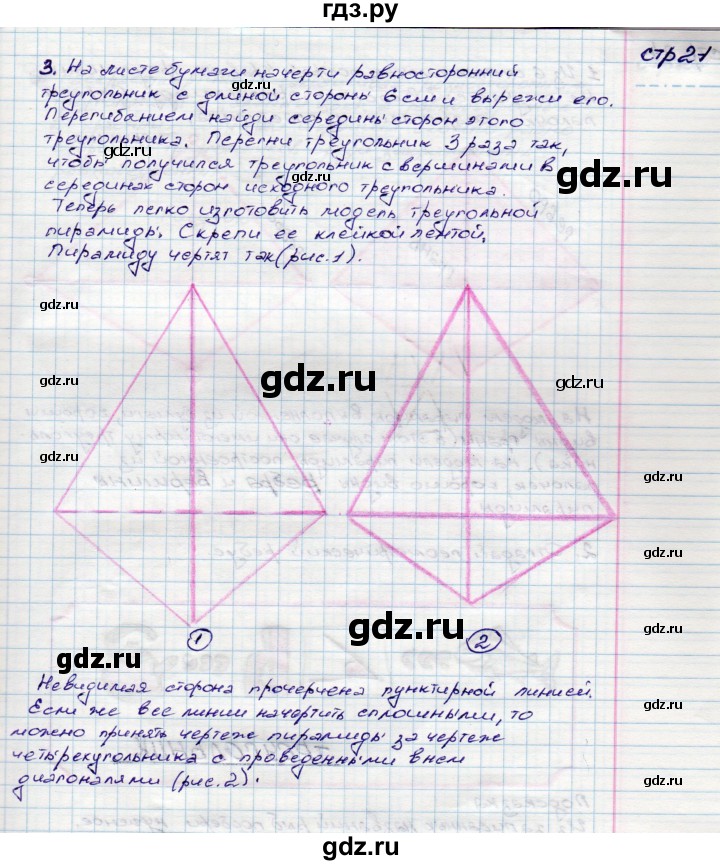 гдз.ру
стр 21
3. На листе бумаги начерти равносторонний
треугольник с длиной стороны 6см и вырежи его.
Перегибанием найди середины сторон этого
треугольника. Перегни треугольник 3 раза так,
чтобы получился треугольник с вершинами в
серединах сторон исходного треугольника.
Теперь легко изготовить модель треугольной
пирамиды. Скрепи ее клейкой лентой.
Пирамиду чертят так (рис.1).
gdz.ru
gdz.ru
gdz.ru
gdz.ru
gdz.ru
gdz.ru
gdz.ru
gdz.ru
gdz.ru
gdz.ru
1
2
gdz.ru
gdz.ru
gdz.ru
Невидимая сторона прочерчена пунктирной линией.
Если же все линии начертить сплошными, то
можно принять чертеж пирамиды за чертеж
четырехугольника с проведенными в нем
диагоналями (рис.2).
gdz.ru